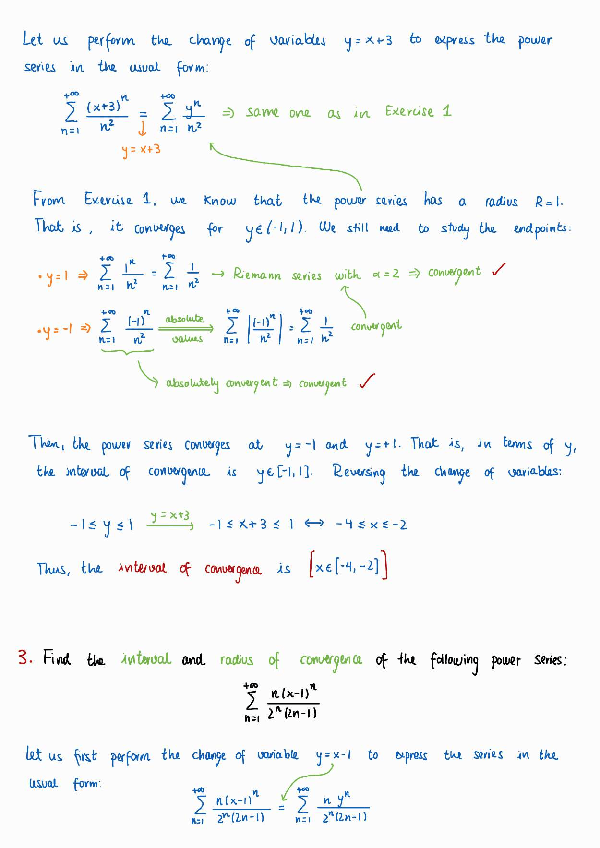 Let us perform the change of variables y=x+3 to express the power
series in the usual form:
+∞ ∑ n=1 (x+3)^n / n² = +∞ ∑ n=1 y^n / n² ⇒ same one as in Exercise 1
y=x+3
From Exercise 1, we know that the power series has a radius R=1.
That is, it converges for y∈(-1,1). We still need to study the endpoints:
• y=1 ⇒ +∞ ∑ n=1 1^n / n² = +∞ ∑ n=1 1 / n² → Riemann series with α=2 ⇒ convergent ✓
• y=-1 ⇒ +∞ ∑ n=1 (-1)^n / n² absolute values ⇒ +∞ ∑ n=1 |(-1)^n / n²| = +∞ ∑ n=1 1 / n² convergent
absolutely convergent ⇒ convergent ✓
Then, the power series converges at y=-1 and y=+1. That is, in terms of y,
the interval of convergence is y∈[-1,1]. Reversing the change of variables:
-1 ≤ y ≤ 1 y=x+3 → -1 ≤ x+3 ≤ 1 ⟷ -4 ≤ x ≤ -2
Thus, the interval of convergence is [x∈[-4,-2]]
3. Find the interval and radius of convergence of the following power series:
+∞ ∑ n=1 n(x-1)^n / 2^n(2n-1)
Let us first perform the change of variable y=x-1 to express the series in the
usual form:
+∞ ∑ n=1 n(x-1)^n / 2^n(2n-1) = +∞ ∑ n=1 n y^n / 2^n(2n-1)